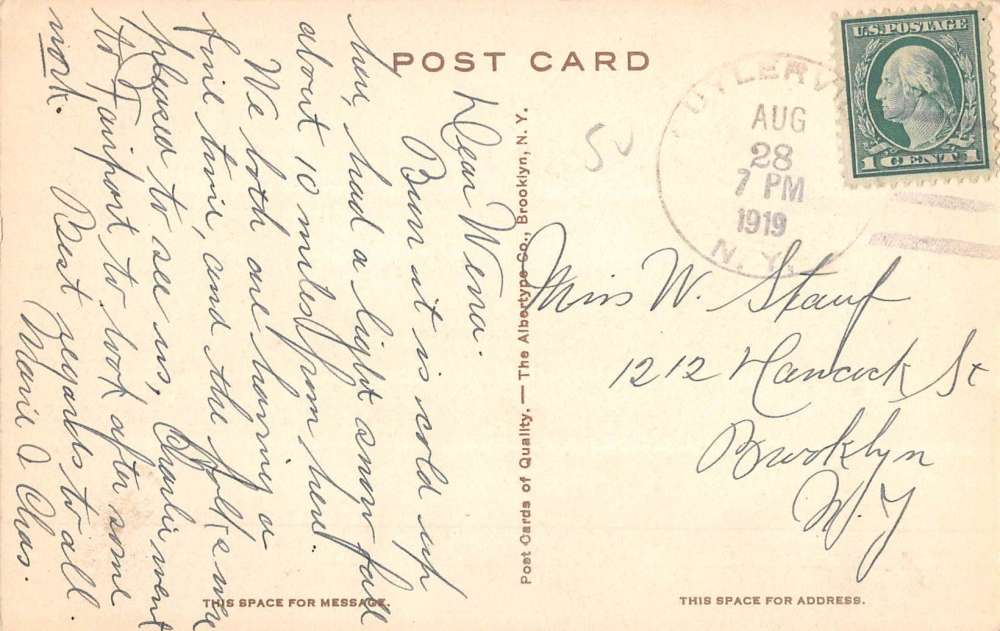 POST CARD
Dear Wena.
Burr it is cold up
here, had a light snow fall
about 10 miles from here.
We both are having a
fine time, and the folks were
pleased to see us, Charlie went
to Fairport to look after some
work. Best regards to all
Marie & Chas.
Post Cards of Quality. — The Albertype Co., Brooklyn, N. Y.
U.S. POSTAGE
1 CENT 1
UYLERV
AUG
28
7 PM
1919
N.Y.
50
Miss W. Stauf
1212 Hancock St
Brooklyn
N.Y
THIS SPACE FOR MESSAGE.
THIS SPACE FOR ADDRESS.